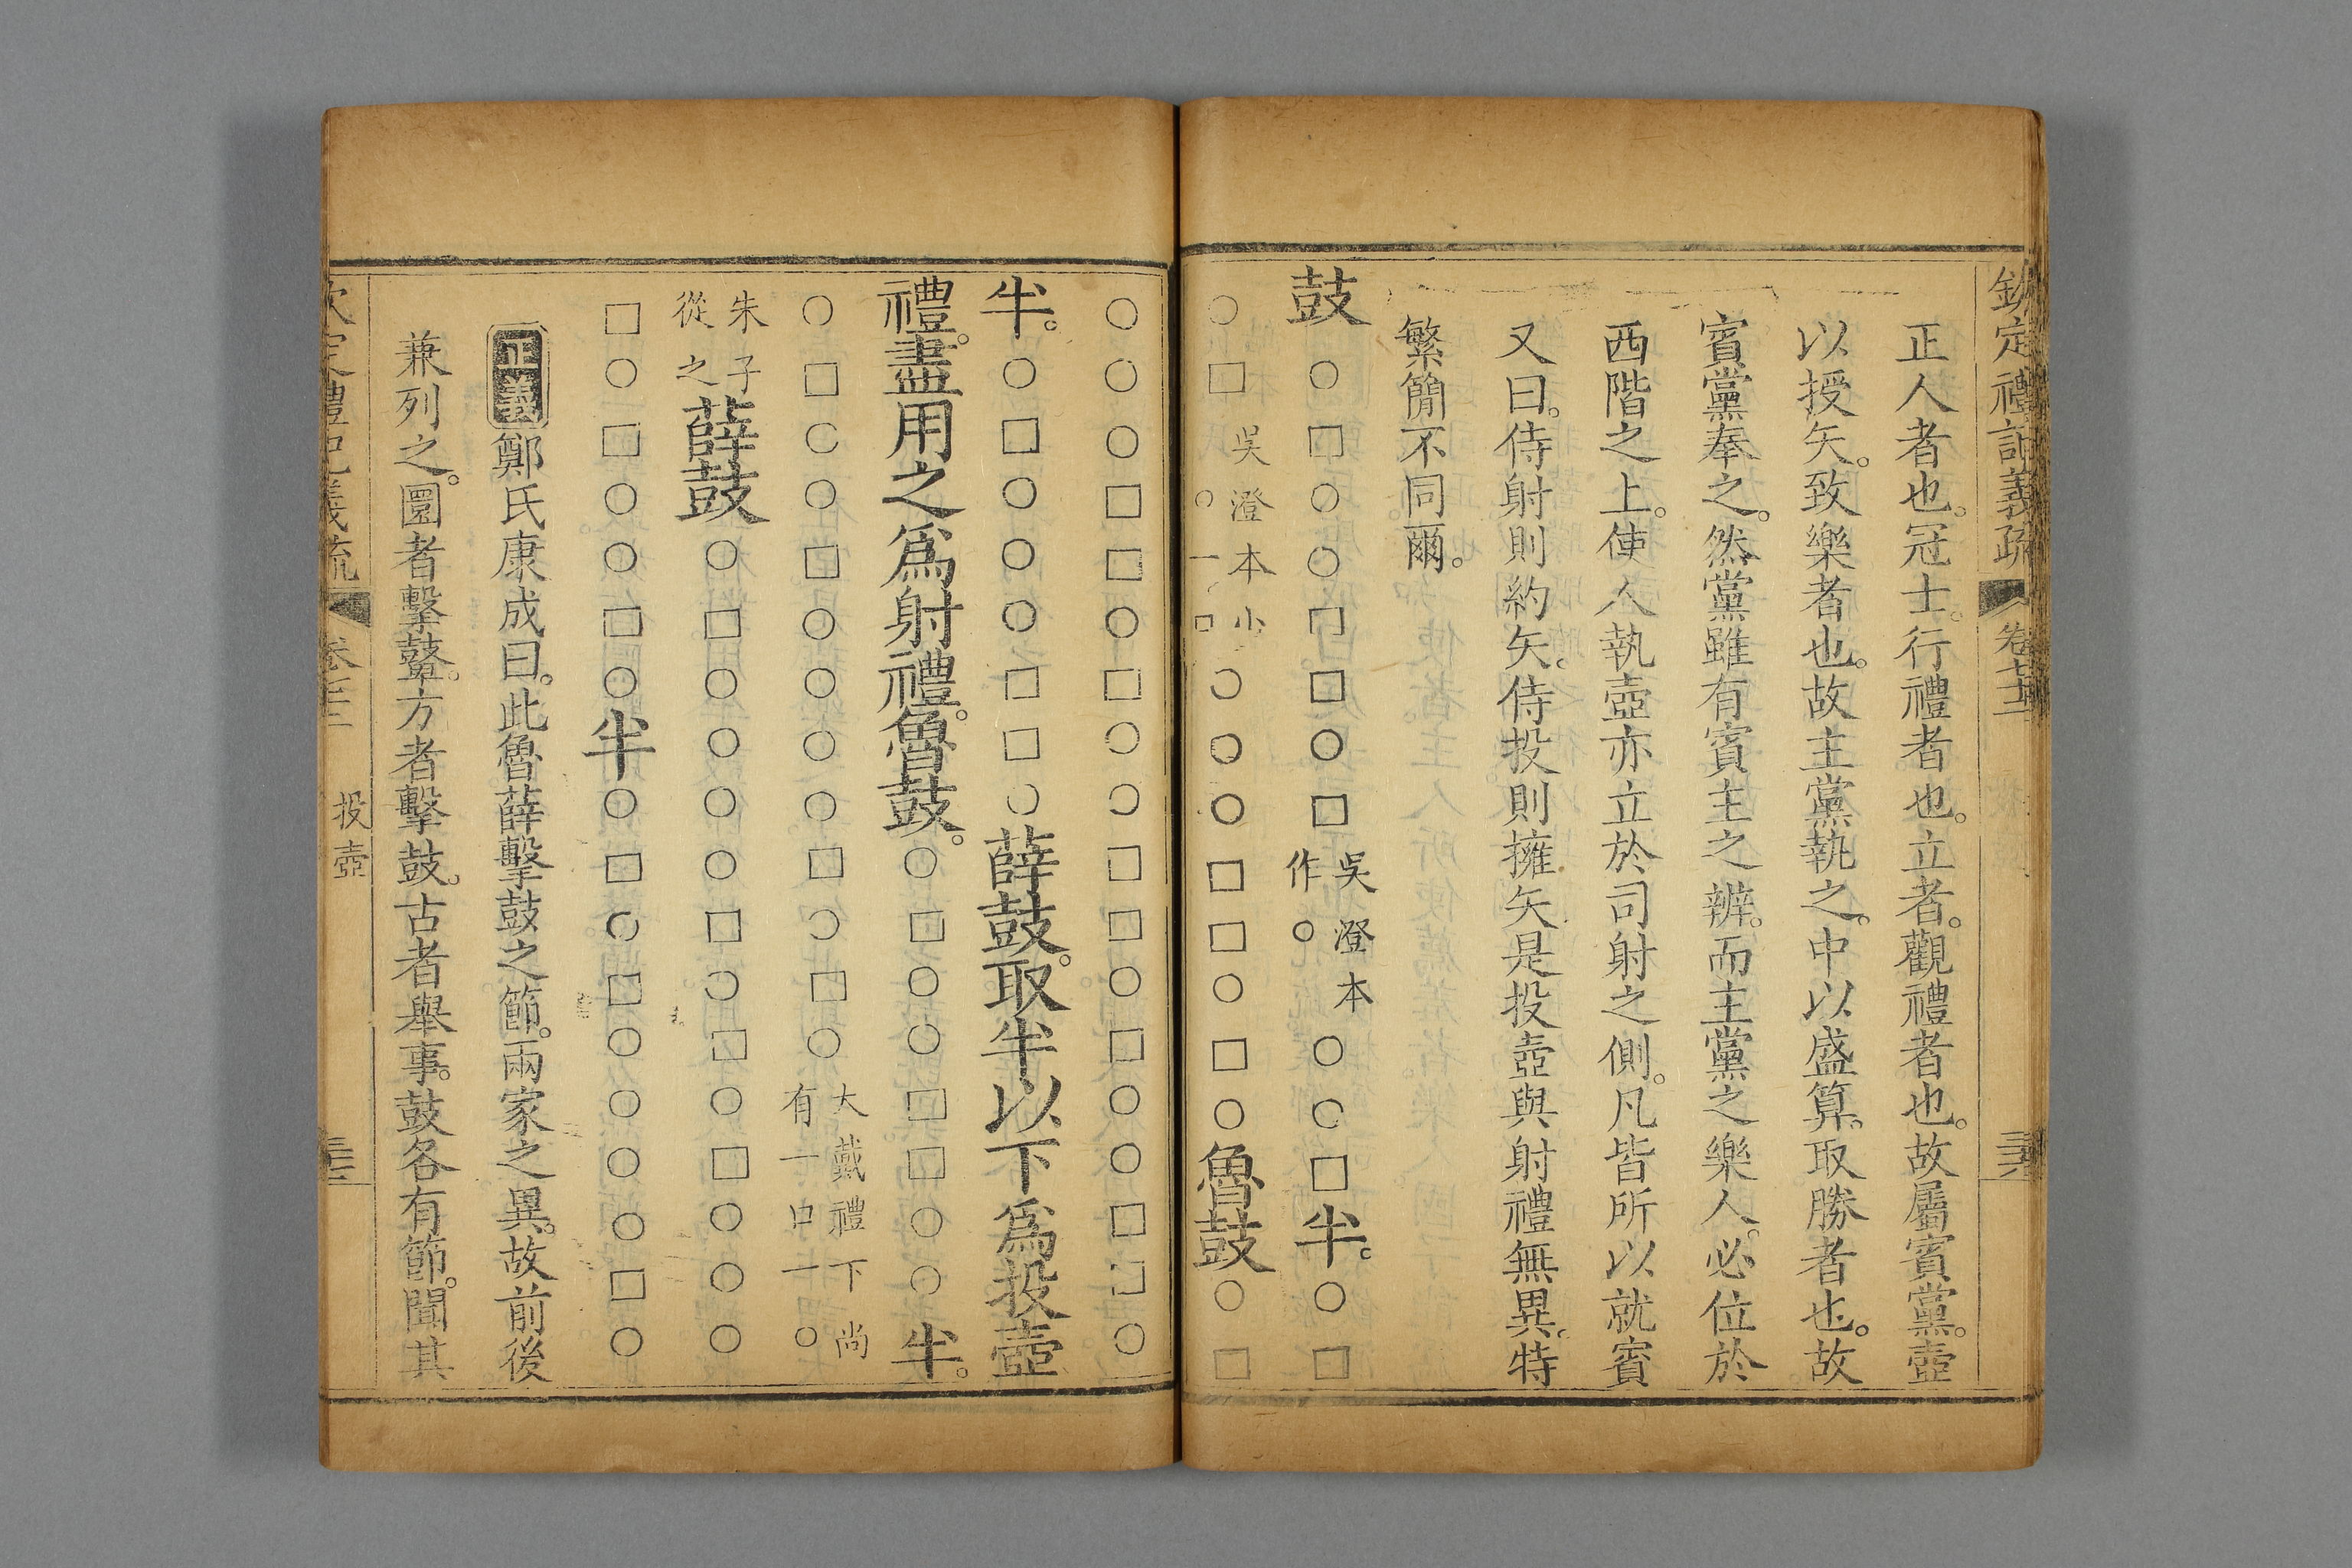 欽定禮記義疏 卷七十二
正人者也。冠士。行禮者也。立者。觀禮者也。故屬賓黨。壺
以授矢。致樂者也。故主黨執之。中以盛算。取勝者也。故
賓黨奉之。然黨雖有賓主之辨。而主黨之樂人。必位於
西階之上。使人執壺亦立於司射之側。凡皆所以就賓
又曰。侍射則約矢。侍投則擁矢。是投壺與射禮無異。特
繁簡不同爾。
鼓○□○○□□○□吳澄本作○○○□半。○□
○□吳澄本小○一□○○○□□○□○魯鼓○□
○○○□□○□○○□□○□○○□□○
半。○□○○○□□○薛鼓。取半以下爲投壺
禮。盡用之爲射禮。魯鼓。○□○○□□○○半。
○□○○□○○○○□○□○大戴禮下尚有一□一○
朱子從之薛鼓○□○○○○□○□○□○○○
□○□○○□○半○□○□○○○○□○
正義鄭氏康成曰。此魯薛擊鼓之節。兩家之異。故前後
兼列之。圜者擊鼙。方者擊鼓。古者舉事。鼓各有節。聞其
投壺